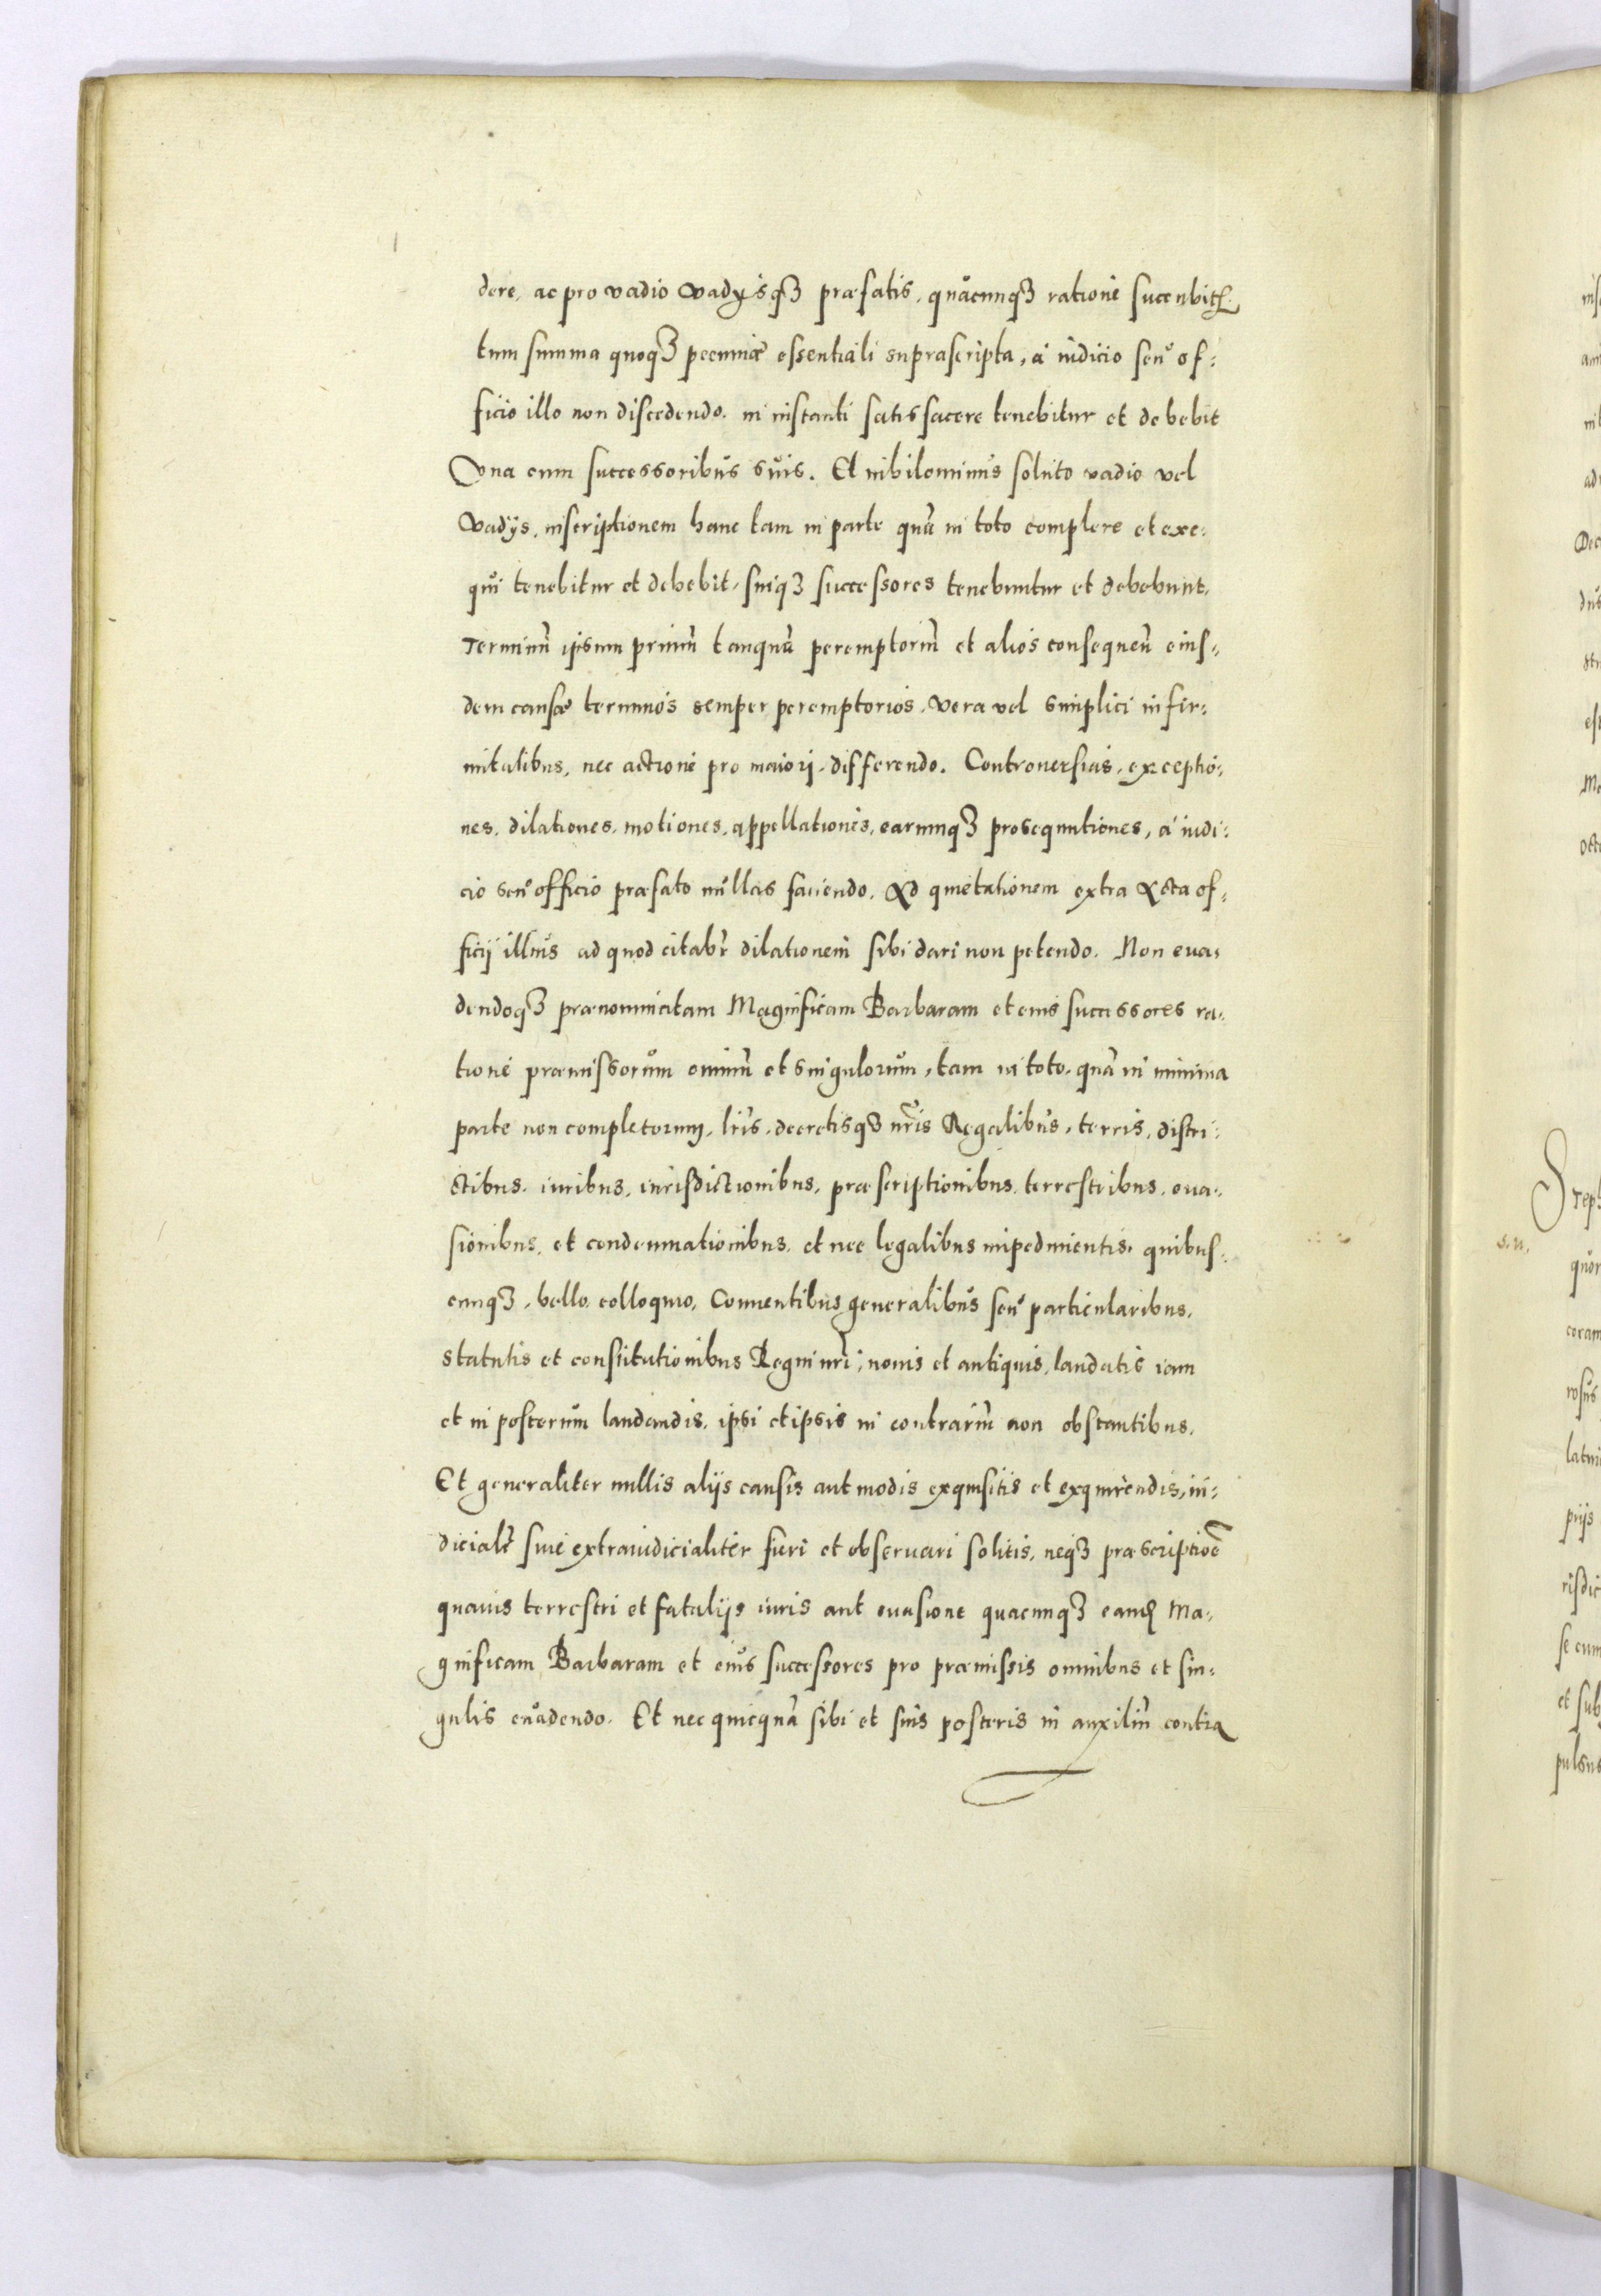 dere, ac pro vadio vadysqȝ præfatis, quacunqȝ ratione succubit
tum summa quoqȝ pecuniæ essentiali suprascripta, a iudicio seu of:
ficio illo non discedendo, in instanti satisfacere tenebitur et debebit
Vna cum successoribus suis. Et nihilominus soluto vadio vel
vadijs, inscriptionem hanc tam in parte quā in toto complere et exe:
qui tenebitur et debebit, suiqȝ successores tenebuntur et debebunt,
Terminū ipsum primū tanquā peremptoriū et alios consequeñ eius:
dem causæ terminos semper peremptorios, vera vel simplici infir:
mitatibus, nec actione pro maiori, differendo. Controuersias, exceptio:
nes, dilationes, motiones, appellationes, earumqȝ prosequutiones, a iudi:
cio seu officio præfato nullas faciendo. Ad quietationem extra Acta of:
ficij illius ad quod citabr̃ dilationem sibi dari non petendo. Non eua:
dendoqȝ prænominatam Magnificam Barbaram et eius successores ra:
tione præmissorum omniū et singulorum, tam in toto, quā in minima
parte non completorum, lr̃is, decretisqȝ nr̃is Regalibus, terris, distri:
ctibus, iuribus, iurisdictionibus, præscriptionibus terrestribus, eua:
sionibus, et condemnationibus, et nec legalibus impedimentis, quibus:
cunqȝ, bello, colloquio, Conuentibus generalibus seu particularibus,
statutis et constitutionibus Regni nr̃i, nouis et antiquis, laudatis iam
et in posterum laudandis, ipsi et ipsis in contrariū non obstantibus.
Et generaliter nullis alijs causis aut modis exquisitis et exquirendis, iu:
dicialr̃ siue extraiudicialiter fieri et obseruari solitis, neqȝ præscriptioē
quauis terrestri et fatalijs iuris aut euasione quacunqȝ eand Ma:
gnificam Barbaram et eius successores pro præmissis omnibus et sin:
gulis euadendo. Et nec quicquā sibi et suis posteris in auxiliū contra